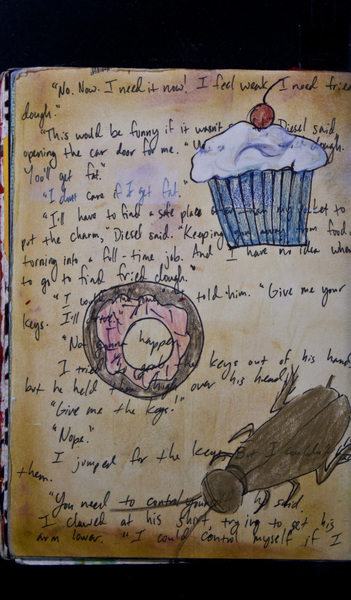 "No. Now. I need it now! I feel weak. I need fried
dough."
"This would be funny if it wasn't Diesel said,
opening the car door for me. dough.
You'll get fat."
"I don't care if I get fat."
"I'll have to find a safe place to
put the charm," Diesel said. "Keeping you away from food
torning into a full-time job. And I have no idea where
to go to find fried dough."
"I told him. "Give me your
keys. I'll
"Not gonna happen."
I tried to grab the keys out of his hand,
but he held them high over his head.
"Give me the keys!"
"Nope."
I jumped for the keys, But I couldn't
them.
"You need to control yourself," he said.
I clawed at his shirt, trying to get his
arm lower. "I could control myself if I